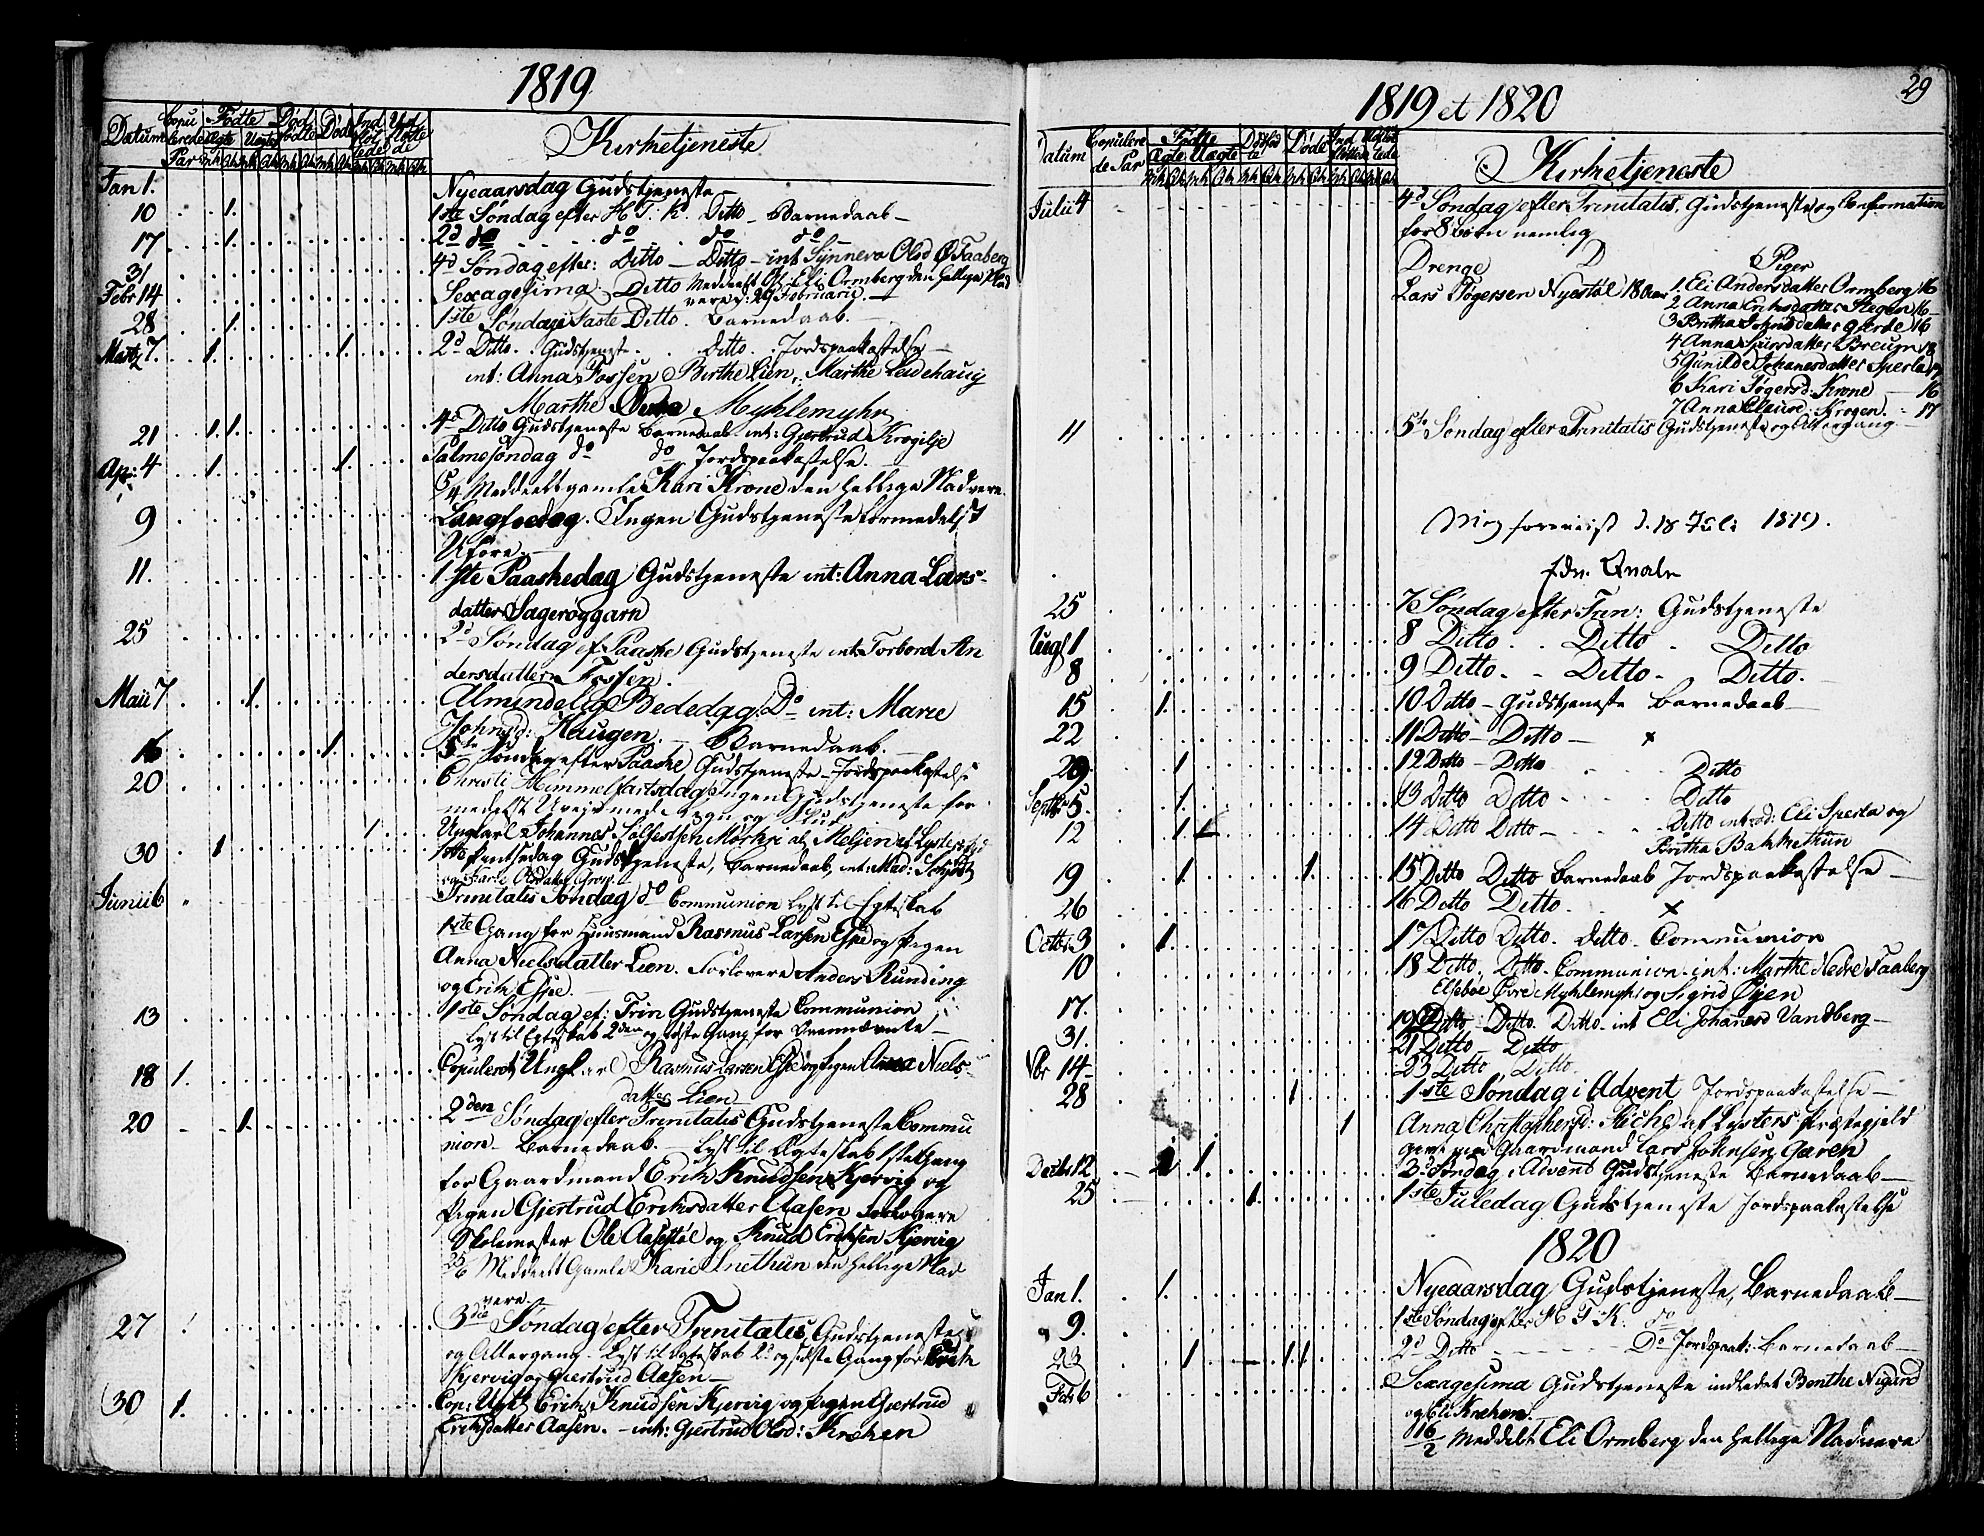 1819
Datum Copulerede Par Fødte Ægte Uægte Dødfødte Døde Indflyttede Udflyttede
Kirketjeneste
Jan 1. Nyeaarsdag Gudstjeneste
10 1. 1ste Søndag efter H. T: K. Ditto - Barnedaab -
17 1. 2d do do do do
31 4d Søndag efter: Ditto - Ditto - int Synneva Olsd Ø Faaberg
Febr 14 Sexagesima Ditto Meddeelt Eli Ormberg den hellige Nad
vere d: 29 Februarii.
28 1. 1ste Søndag i Faste Ditto. Barnedaab.
Martz 7. 1. 1. 2d Ditto. Gudstjeneste. Ditto. Jordspaakastelse
int: Anna Fossen Birthe Lien, Marthe Leidehaug
Marthe Myhlemyhr
21 1. 1. 4d Ditto Gudstjeneste Barnedaab int: Gjertrud Krogilje
Apr: 4 1. 1. Palmesøndag do do Jordspaakastelse.
5/4 Meddeelt gamle Kari Krone den hellige Nadvere
9 Langfredag. Ingen Gudstjeneste formedelst
Uføre.
11. 1ste Paaskedag Gudstjeneste int: Anna Lars-
datter Sagerøggarn
25 2d Søndag ef. Paaske Gudstjeneste int: Torbord An
dersdatter Fossen
Maii 7 1. Almindelig Bededag Do int: Marie
Johnsd: Haugen. - Barnedaab.
16 1. 5te Søndag efter Paaske Gudstjeneste - Jordspaakastelse
20 Christi Himmelfartsdag Ingen Gudstjeneste for
medelst Uvejr med Regn og Slud
1. Ungkarl Johannes Mørkri
30 1. 1ste Pintsedag Gudstjeneste, Barnedaab, int: Mad:
Junii 6 Trinitatis Søndag do Communion Lyst til Egteskab
1ste Gang for Huusmand Rasmus Larsen Espe og Pigen
Anna Nielsdatter Lien. Forlovere Anders Runding
og Erik Espe.
13 1ste Søndag ef: Trin Gudstjeneste Communion
Lyst til Egteskab 2den og sidste Gang for Ovennævnte
18 1. Copuleret Ungkarl Rasmus Larsen Espe og Pigen Anna Niels-
datter Lien
20 1. 2den Søndag efter Trinitatis Gudstjeneste Commu
nion. Barnedaab. - Lyst til Ægteskab 1ste Gang
for Gaardmand Erik Knudsen Kjervig og
Pigen Gjertrud Eriksdatter Aasen Forlovere
Skolemester Ole Aasestøl og Knud Eriksen Kjervig
Meddeelt Gamle Karie Snethun den hellige Nad
vere.
27 3die Søndag efter Trinitatis, Gudstjeneste
og Altergang. Lyst til Egteskab 2d og sidste Gang for Erik
Kjervig og Gjertrud Aasen
30 1. Cop: Ungk Erik Knudsen Kjervig og Pigen Gjertrud
Eriksdatter Aasen. - int: Gjertrud Olsd: Krehen
29
1819 et 1820
Datum Copulerede Par Fødte Ægte Uægte Dødfødte Døde Indflyttede
Kirketjeneste
Julii 4 4d Søndag efter Trinitatis. Gudstjeneste og Confirmation
for 8 Børn nemlig
Drenge Piger
Lars Tøgersen Nyestøl 18 Aar 1 Eli Andersdatter Ormberg 16
2 Anna Eriksdatter Stegen 16
3 Britha Gierde 16
4 Anna Breugn 18
5 Gunilde Johanesdatter Sperla 17
6 Kari Tøgersd. Krone - 16
7 Anna Clausd. Krogen. - 17
11 5te Søndag efter Trinitatis Gudstjeneste og Altergang
forevist d. 18 Juli 1819.
Qvale
25 7d Søndag efter Trin: Gudstjeneste
Augt 1 8 Ditto. Ditto. Ditto
8 9 Ditto. Ditto. Ditto.
15 1. 10 Ditto - Gudstjeneste Barnedaab
22 11 Ditto - Ditto - x
29. 1 12 Ditto - Ditto Ditto
Septbr 5. 1. 13 Ditto Ditto Ditto
12 1 14 Ditto Ditto - Ditto introd: Eli Sperla og
Britha Bakkethun
19 1 1. 15 Ditto Ditto Barnedaab Jordspaakastelse
26 16 Ditto Ditto. x
Octbr 3 1. 17 Ditto Ditto. Ditto. Communion
10 18 Ditto. Ditto. Communion. int: Marthe Nedre Faaberg
Øvre Myhlemyhr og Sigrid Øyen
17. 19 Ditto Ditto. Ditto. int Eli Johansd Vandberg
31. 21 Ditto Ditto
Nbr 14 23 Ditto Ditto.
28 1 1ste Søndag i Advent Jordspaakastelse
1 Anna Christophersd: af Lysters Præstegjeld
givt med Gaardmand Lars Johnsen Garen
Decbr 12 1 3d Søndag i Advent Gudstjeneste Barnedaab
25 1. 1ste Juledag Gudstjeneste Jordspaakastelse
1820
Jan 1. 1. Nyeaarsdag Gudstjeneste, Barnedaab
9. 1ste Søndag efter H T K. do
23 1 1 1 2d Ditto Do Jordspaak: Barnedaab
Feb 6 Sexagesima Gudstjeneste indledet Benthe Nigard
og Eli Krehen.
16/2 Meddelt Eli Ormberg den hellige Nadvere